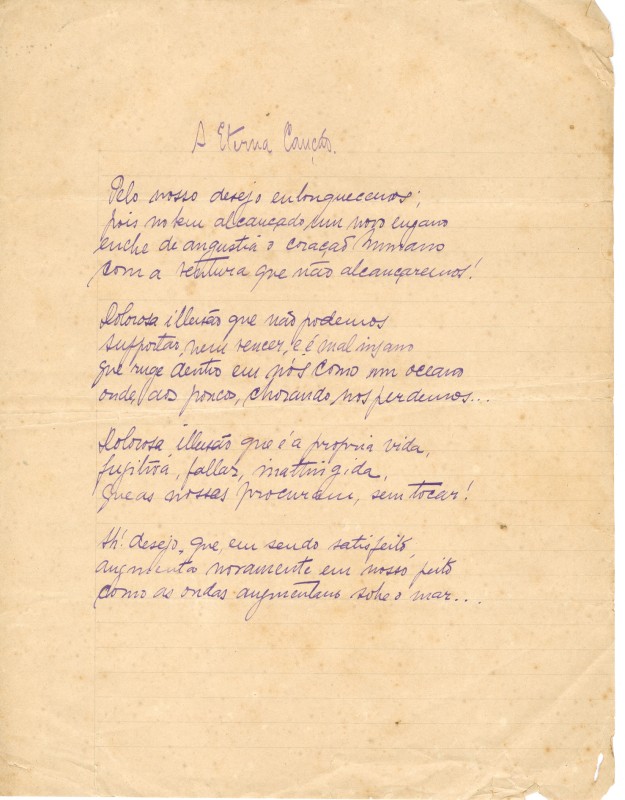 A Eterna Canção.
Pelo nosso desejo enlouquecemos;
pois no bem alcançado, um novo engano
enche de angustia o coração humano
com a ventura que não alcançaremos!
Dolorosa illusão que não podemos
supportar, nem vencer, e é mal insano
que ruge dentro em nós como um oceano
onde, aos poucos, chorando, nos perdemos...
Dolorosa illusão que é a propria vida,
fugitiva, fallaz, inattingida,
que as nossas procuram, sem tocar!
Ah! desejo, que, em sendo satisfeito,
augmenta novamente em nosso peito
como as ondas augmentam sobre o mar...